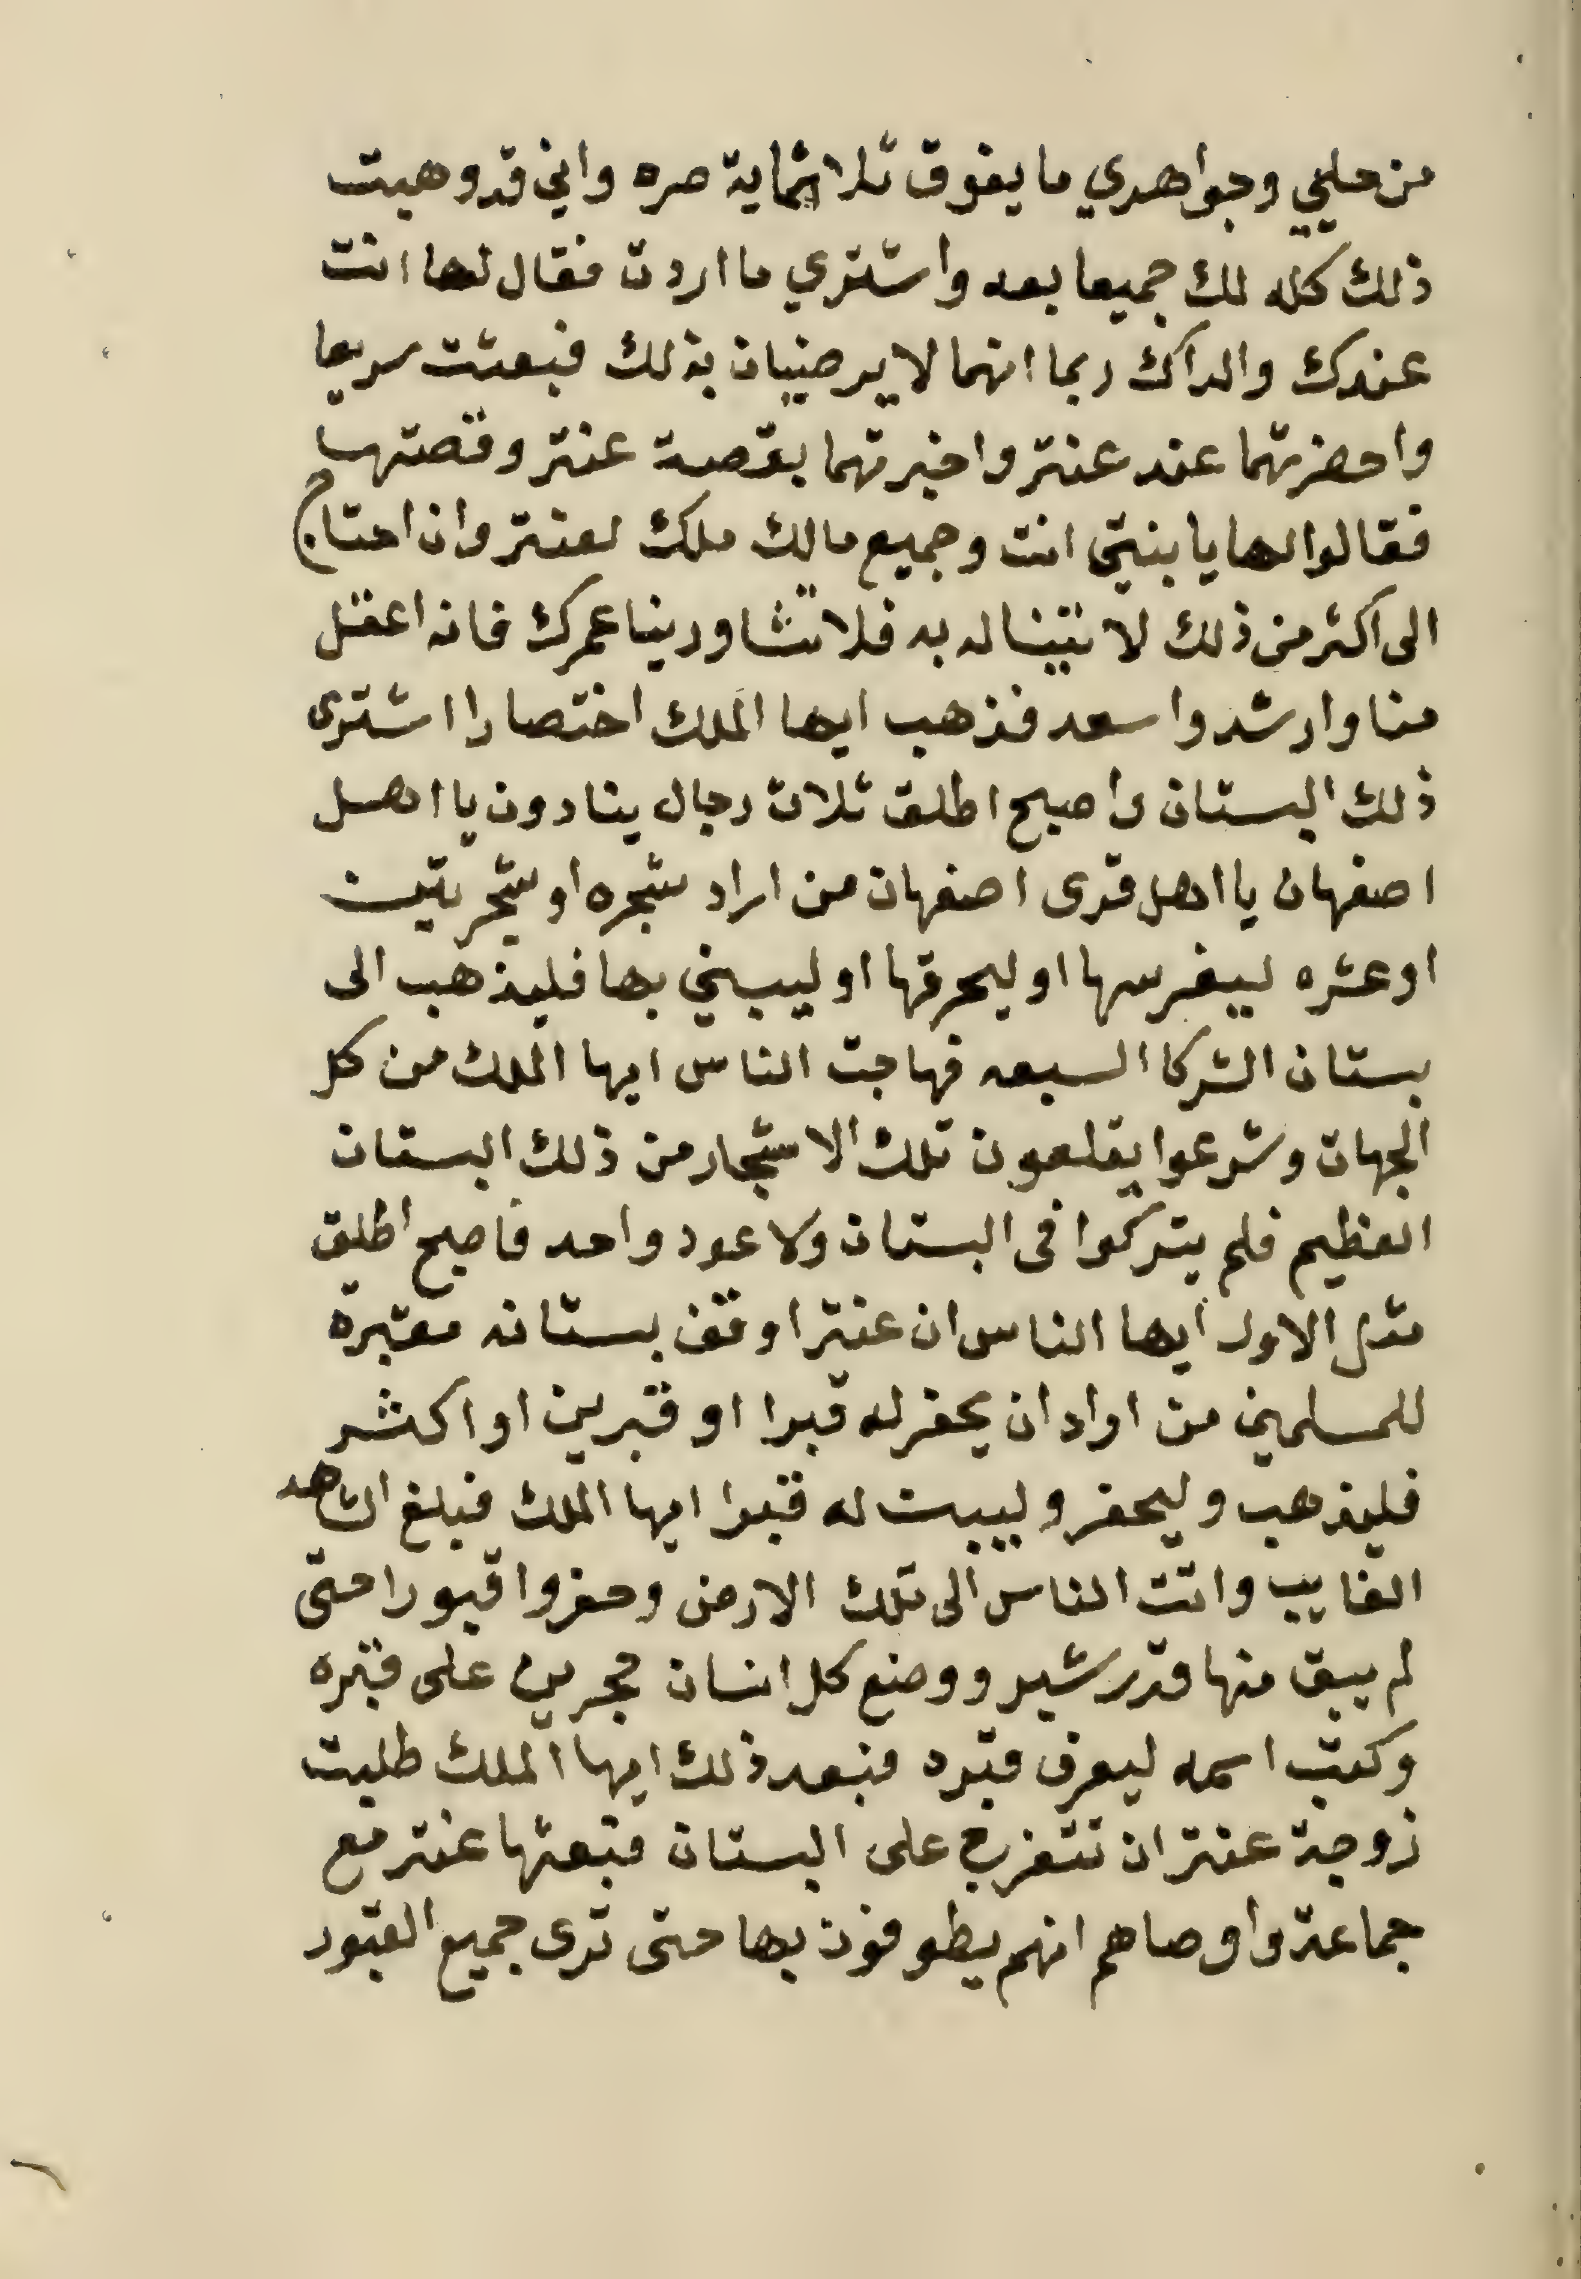 من حليي وجواهري ما يفوق ثلاثماية صره واني قد وهبت
ذلك كله لك جميعا بعه واشتري ما اردت فقال لها انت
عندك والداك ربما انهما لا يرضيان بذلك فبعثت سريعا
واحضرتهما عند عنتر واخبرتهما بقصة عنتر وقصتها
فقالوا لها يا بنيتي انت وجميع مالك ملك لعنتر وان احتاج
الى اكثر من ذلك لاتيناله به فلا تشاورينا عمرك فانه اعقل
منا وارشد واسعد فذهب ايها الملك اختصارا اشترى
ذلك البستان واصبح اطلق ثلاث رجال ينادون يا اهل
اصفهان يا اهل قرى اصفهان من اراد شجره او شجرتين
او عشره ليغرسها او ليحرقها او ليبني بها فليذهب الى
بستان الشركا السبعه فهاجت الناس ايها الملك من كل
الجهات وشرعوا يقلعون تلك الاشجار من ذلك البستان
العظيم فلم يتركوا فى البستان ولا عود واحد فاصبح اطلق
مثل الاول ايها الناس ان عنتر اوقف بستانه مقبرة
للمسلمين من اراد ان يحفر له قبرا او قبرين او اكثر
فليذهب وليحفر وليبت له قبرا ايها الملك فبلغ الشاهد
الغايب واتت الناس الى تلك الارض وحفروا قبورا حتى
لم يبق منها قدر شبر ووضع كل انسان حجرين على قبره
وكتب اسمه ليعرف قبره فبعد ذلك ايها الملك طلبت
زوجة عنتر ان تتفرج على البستان فبعثها عنتر مع
جماعة واوصاهم انهم يطوفون بها حتى ترى جميع القبور